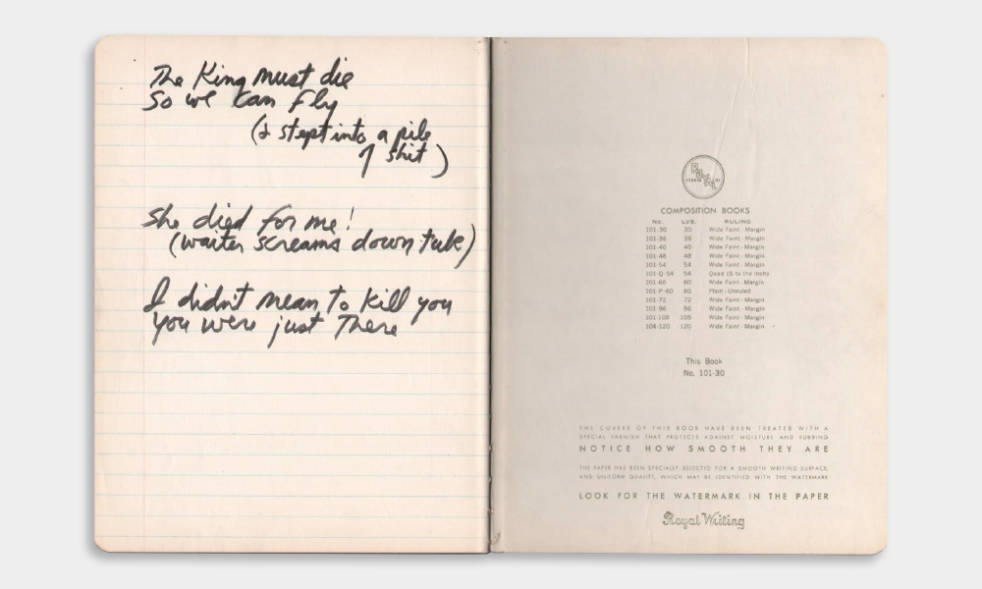 The King must die
So we can fly
(I stept into a pile
of shit)
She died for me!
(waiter screams down
I didn't mean to kill you
you were just There
COMPOSITION BOOKS
No. LVS. RULING
101-30 30 Wide Faint - Margin
101-36 36 Wide Faint - Margin
101-40 40 Wide Faint - Margin
101-48 48 Wide Faint - Margin
101-54 54 Wide Faint - Margin
101-Q-54 54 Quad (5 to the Inch)
101-60 60 Wide Faint - Margin
101-P-60 60 Plain - Unruled
101-72 72 Wide Faint - Margin
101-96 96 Wide Faint - Margin
101-108 108 Wide Faint - Margin
104-120 120 Wide Faint - Margin
This Book
No. 101-30
THE COVERS OF THIS BOOK HAVE BEEN TREATED WITH A
SPECIAL VARNISH THAT PROTECTS AGAINST MOISTURE AND RUBBING
NOTICE HOW SMOOTH THEY ARE
THE PAPER HAS BEEN SPECIALLY SELECTED FOR A SMOOTH WRITING SURFACE,
AND UNIFORM QUALITY, WHICH MAY BE IDENTIFIED WITH THE WATERMARK
LOOK FOR THE WATERMARK IN THE PAPER
Royal Writing